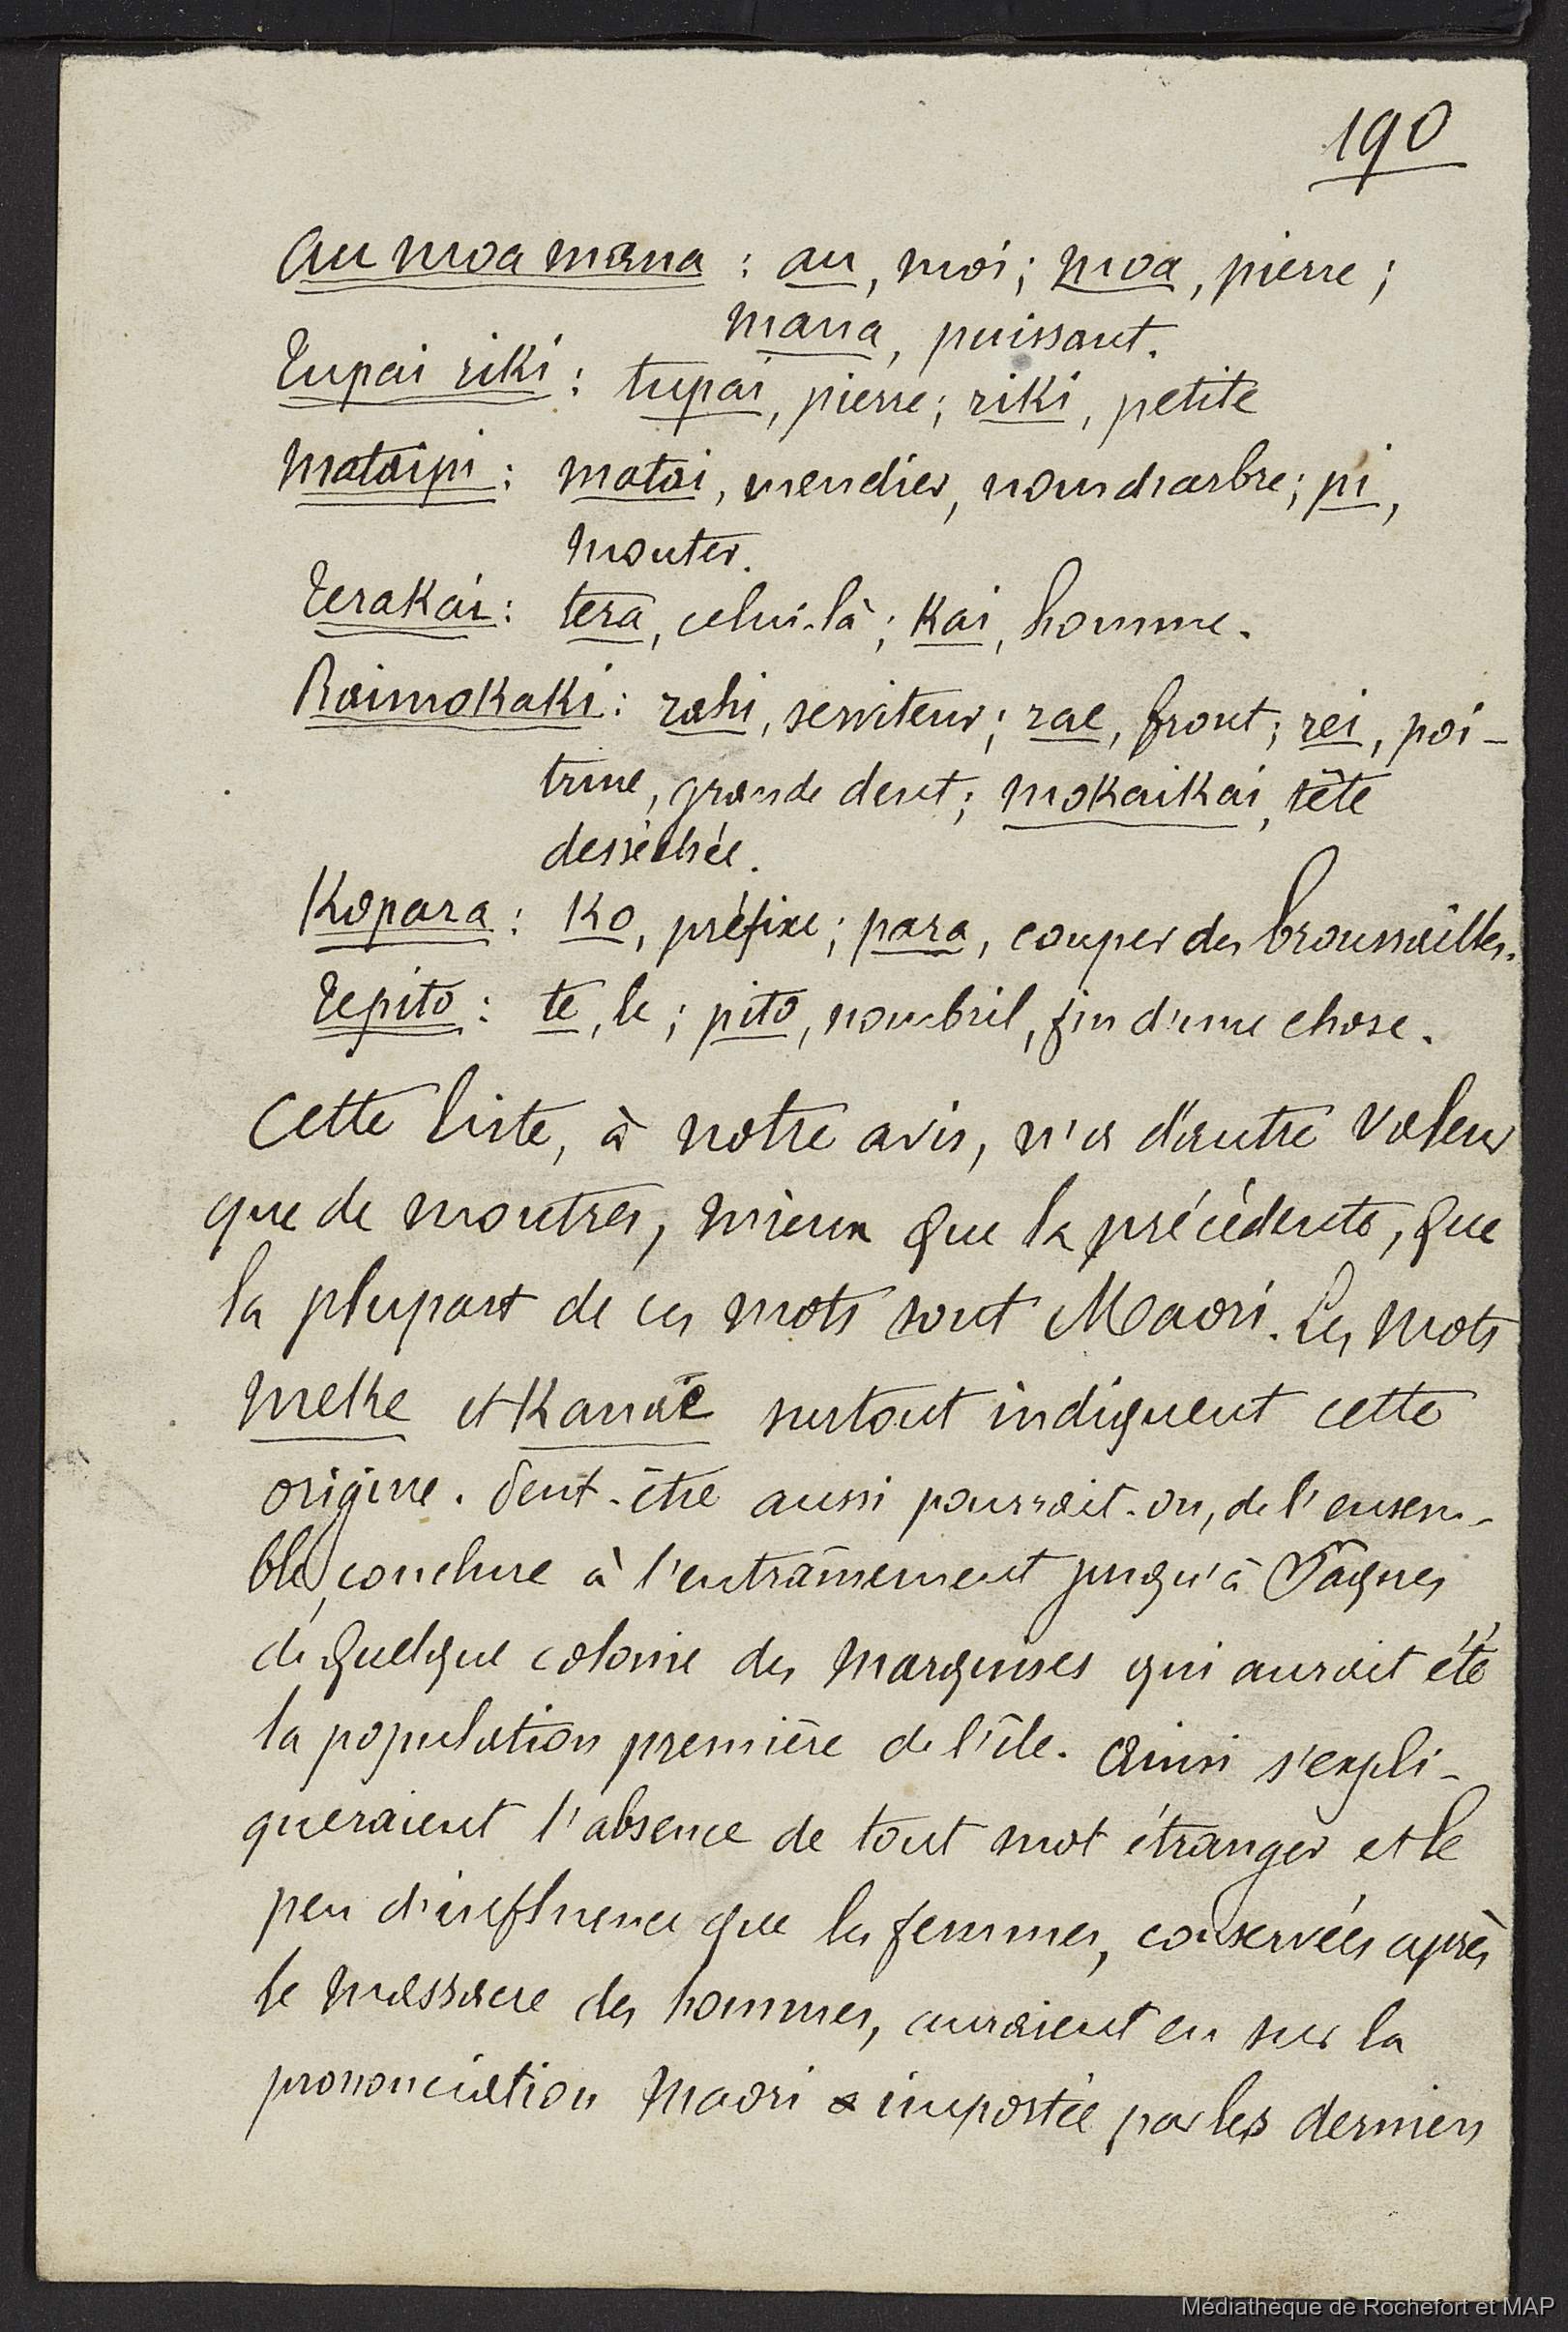 190
Au moa mana : au, moi ; moa, pierre ;
mana, puissant.
Tupai riki : tupai, pierre ; riki, petite
Mataipi : matai, mendier, nom d'arbre ; pi,
monter.
Terakai : tera, celui-là ; kai, homme.
Raimokaki : rahi, serviteur ; rae, front ; rei, poi-
trine, grande dent ; mokaikai, tête
desséchée.
Kopara : ko, préfixe ; para, couper des broussailles.
Tepito : te, le ; pito, nombril, fin d'une chose.
Cette liste, à notre avis, n'a d'autre valeur
que de montrer, mieux que la précédente, que
la plupart de ces mots sont Maori. Les mots
meke et Kanae surtout indiquent cette
origine. Peut-être aussi pourrait-on, de l'ensem-
ble, conclure à l'entraînement jusqu'à Pâques
de quelque colonie des Marquises qui aurait été
la population première de l'île. Ainsi s'expli-
queraient l'absence de tout mot étranger et le
peu d'influence que les femmes, conservées après
le massacre des hommes, auraient eu sur la
prononciation Maori importée par les derniers
Médiathèque de Rochefort et MAP